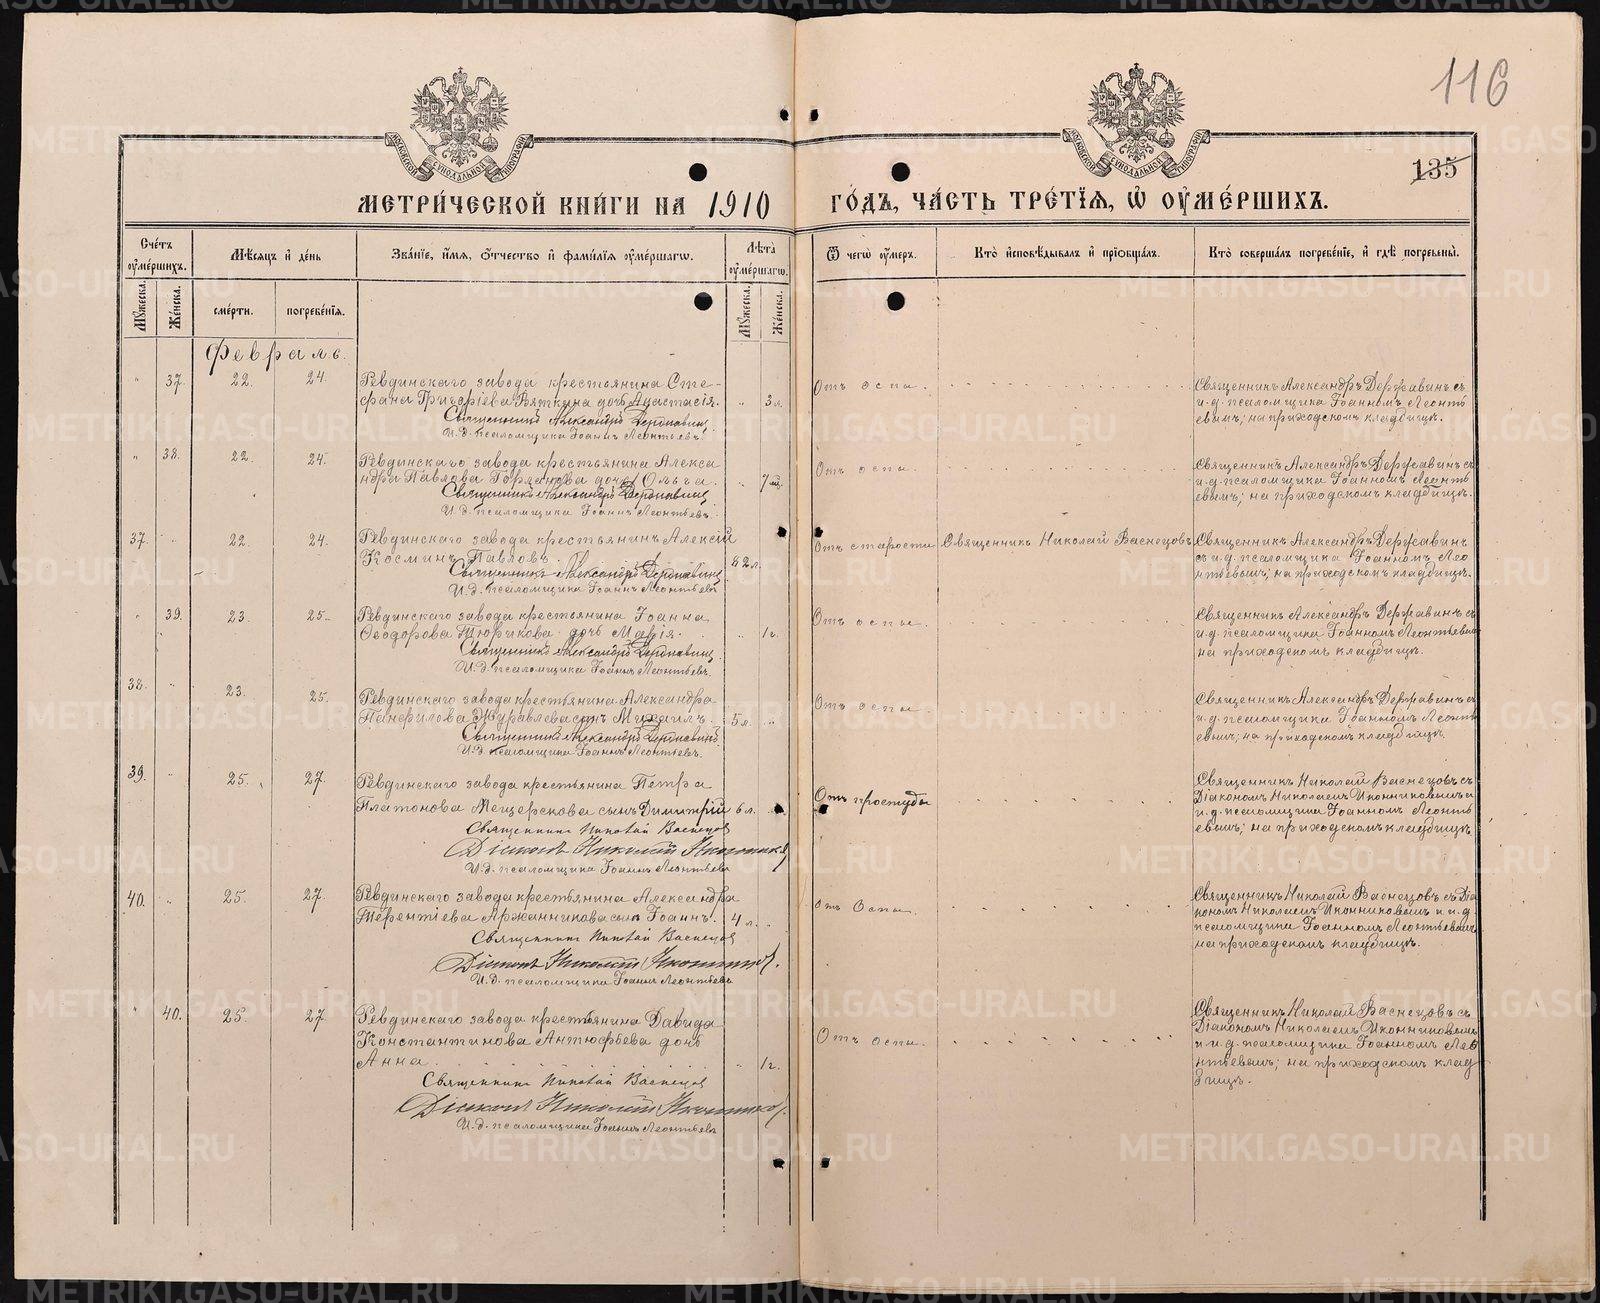 116
135
МЕТРИЧЕСКОЙ КНИГИ НА 1910
ГОДЪ, ЧАСТЬ ТРЕТІЯ, Ѡ ОУМЕРШИХЪ.
Счетъ оумершихъ.
Мѣсяцъ и день
Званіе, имя, отчество и фамилія оумершагѡ.
Лѣта оумершагѡ.
Ѿ чегѡ оумеръ.
Кто исповѣдывалъ и пріобщалъ.
Кто совершалъ погребеніе, и гдѣ погребены.
Мужеска.
Женска.
смерти.
погребенія.
Мужеска.
Женска.
Февраль.
" 37. 22. 24. Ревдинскаго завода крестьянина Сте-
фана Григоріева Вяткина дочь Анастасія. " 3 л.
Священникъ Александръ Державинъ
И. д. псаломщика Іоаннъ Леонтьевъ.
Отъ оспы.
Священникъ Александръ Державинъ съ
и. д. псаломщика Іоанномъ Леонть
евымъ; на приходскомъ кладбищѣ.
" 38. 22. 24. Ревдинскаго завода крестьянина Алекса
ндра Павлова Горланова дочь Ольга. " 7 мц.
Священникъ Александръ Державинъ
И. д. псаломщика Іоаннъ Леонтьевъ.
Отъ оспы.
Священникъ Александръ Державинъ съ
и. д. псаломщика Іоанномъ Леонть
евымъ; на приходскомъ кладбищѣ.
37. " 22. 24. Ревдинскаго завода крестьянинъ Алексій
Косминъ Павловъ. 82 л.
Священникъ Александръ Державинъ
И. д. псаломщика Іоаннъ Леонтьевъ
Отъ старости
Священникъ Николай Васнецовъ
Священникъ Александръ Державинъ
съ и. д. псаломщика Іоанномъ Лео
нтьевымъ; на приходскомъ кладбищѣ.
" 39. 23. 25. Ревдинскаго завода крестьянина Іоанна
Ѳеодорова Тюрикова дочь Марія. " 1 г.
Священникъ Александръ Державинъ
И. д. псаломщика Іоаннъ Леонтьевъ.
Отъ оспы.
Священникъ Александръ Державинъ съ
и. д. псаломщика Іоанномъ Леонтьевымъ
на приходскомъ кладбищѣ.
38. " 23. 25. Ревдинскаго завода крестьянина Александра
Панфилова Журавлева сынъ Михаилъ. 5 л. "
Священникъ Александръ Державинъ
И. д. псаломщика Іоаннъ Леонтьевъ.
Отъ оспы.
Священникъ Александръ Державинъ съ
и. д. псаломщика Іоанномъ Леонть
евымъ; на приходскомъ кладбищѣ.
39. " 25. 27. Ревдинскаго завода крестьянина Петра
Платонова Мещерскова сынъ Димитрій 6 л.
Священникъ Николай Васнецовъ
Діаконъ Николай Иконниковъ
И. д. псаломщика Іоаннъ Леонтьевъ
Отъ простуды
Священникъ Николай Васнецовъ съ
Діакономъ Николаемъ Иконниковымъ и
и. д. псаломщика Іоанномъ Леонть
евымъ; на приходскомъ кладбищѣ.
40. " 25. 27. Ревдинскаго завода крестьянина Александра
Терентіева Аржанникова сынъ Іоаннъ. 4 л. "
Священникъ Николай Васнецовъ
Діаконъ Николай Иконниковъ.
И. д. псаломщика Іоаннъ Леонтьевъ
Отъ Оспы.
Священникъ Николай Васнецовъ съ Діа
кономъ Николаемъ Иконниковымъ и и. д.
псаломщика Іоанномъ Леонтьевымъ
на приходскомъ кладбищѣ.
" 40. 25. 27. Ревдинскаго завода крестьянина Давида
Константинова Антюфьева дочь
Анна. " 1 г.
Священникъ Николай Васнецовъ
Діаконъ Николай Иконниковъ.
И. д. псаломщика Іоаннъ Леонтьевъ
Отъ оспы.
Священникъ Николай Васнецовъ съ
Діакономъ Николаемъ Иконниковымъ
и и. д. псаломщика Іоанномъ Лео
нтьевымъ; на приходскомъ клад
бищѣ.
METRIKI.GASO-URAL.RU